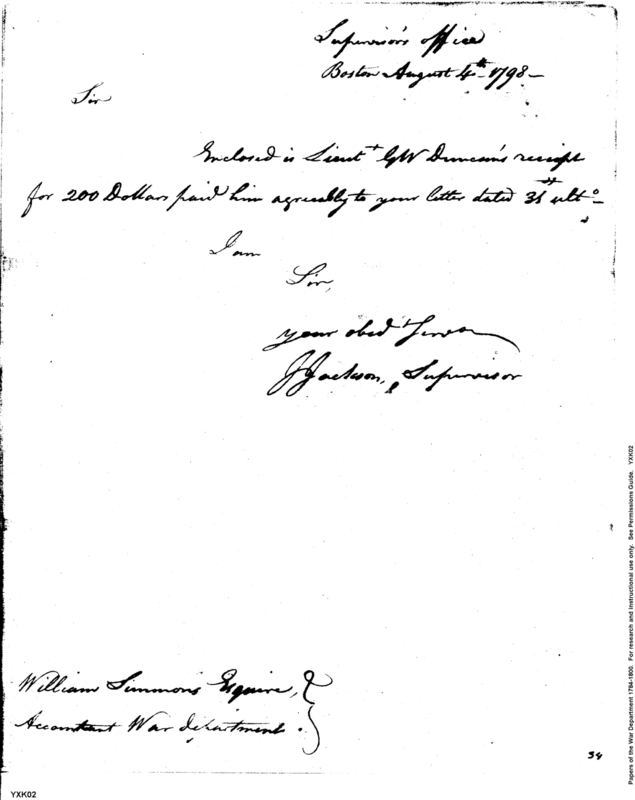 Supervisor's office
Boston August 4th 1798 —
Sir
Enclosed is Lieut GW Duncan's receipt
for 200 Dollars paid him agreeably to your letter dated 31st ulto —
I am
Sir,
your obed Serva
J Jackson, Supervisor
William Simmons Esquire,
Accountant War department.
34
YXK02
Papers of the War Department 1784-1800. For research and instructional use only. See Permissions Guide. YXK02